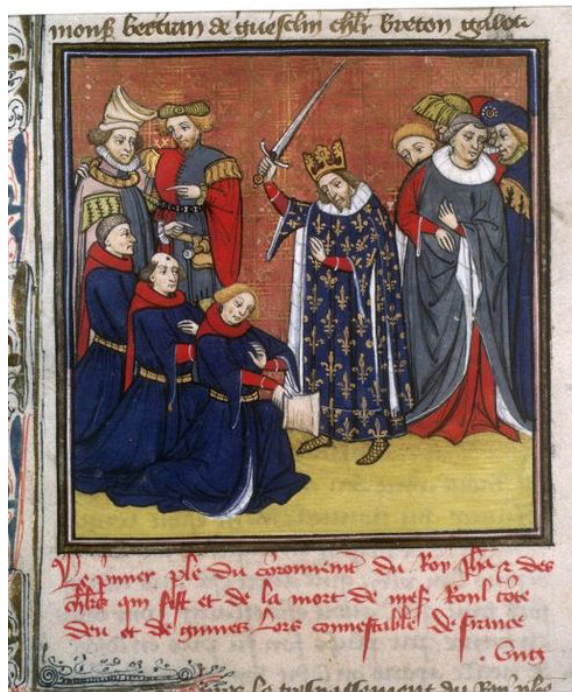 monſ bertran de gueſclin chlr breton
Le p̄mier ple du coronnement du Roy Jhā & des
chlrs qui fiſt et de la mort de meſſ Raoul cōte
deu et de guines Lors conneſtable de france